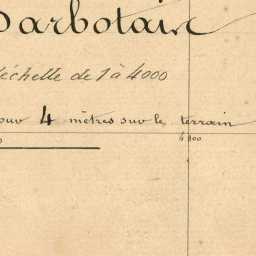 Barbotain
l'échelle de 1 à 4000
pour 4 mètres sur le terrain